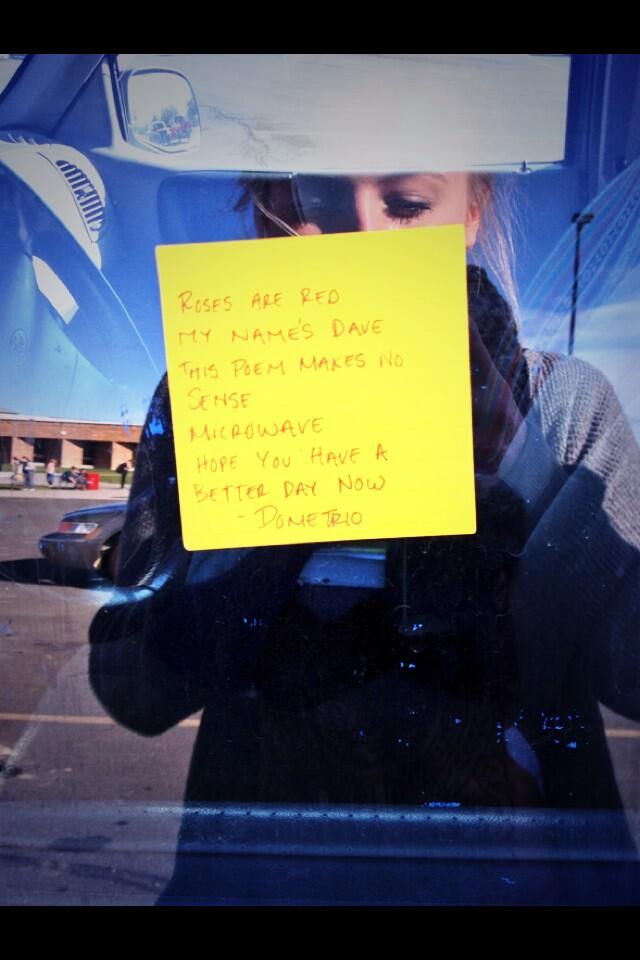 ROSES ARE RED
MY NAME'S DAVE
THIS POEM MAKES NO
SENSE
MICROWAVE
HOPE YOU HAVE A
BETTER DAY NOW
- DOMETRIO